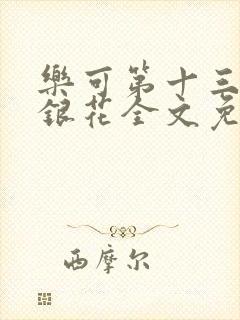 樂可第十三
銀花全文免
西摩尔